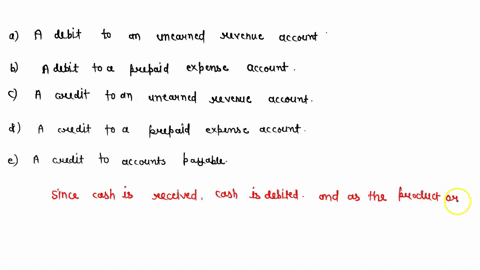 a) A debit to an unearned revenue account.
b) A debit to a prepaid expense account.
c) A credit to an unearned revenue account.
d) A credit to a prepaid expense account.
e) A credit to accounts payable.
Since cash is received, cash is debited. and as the product or